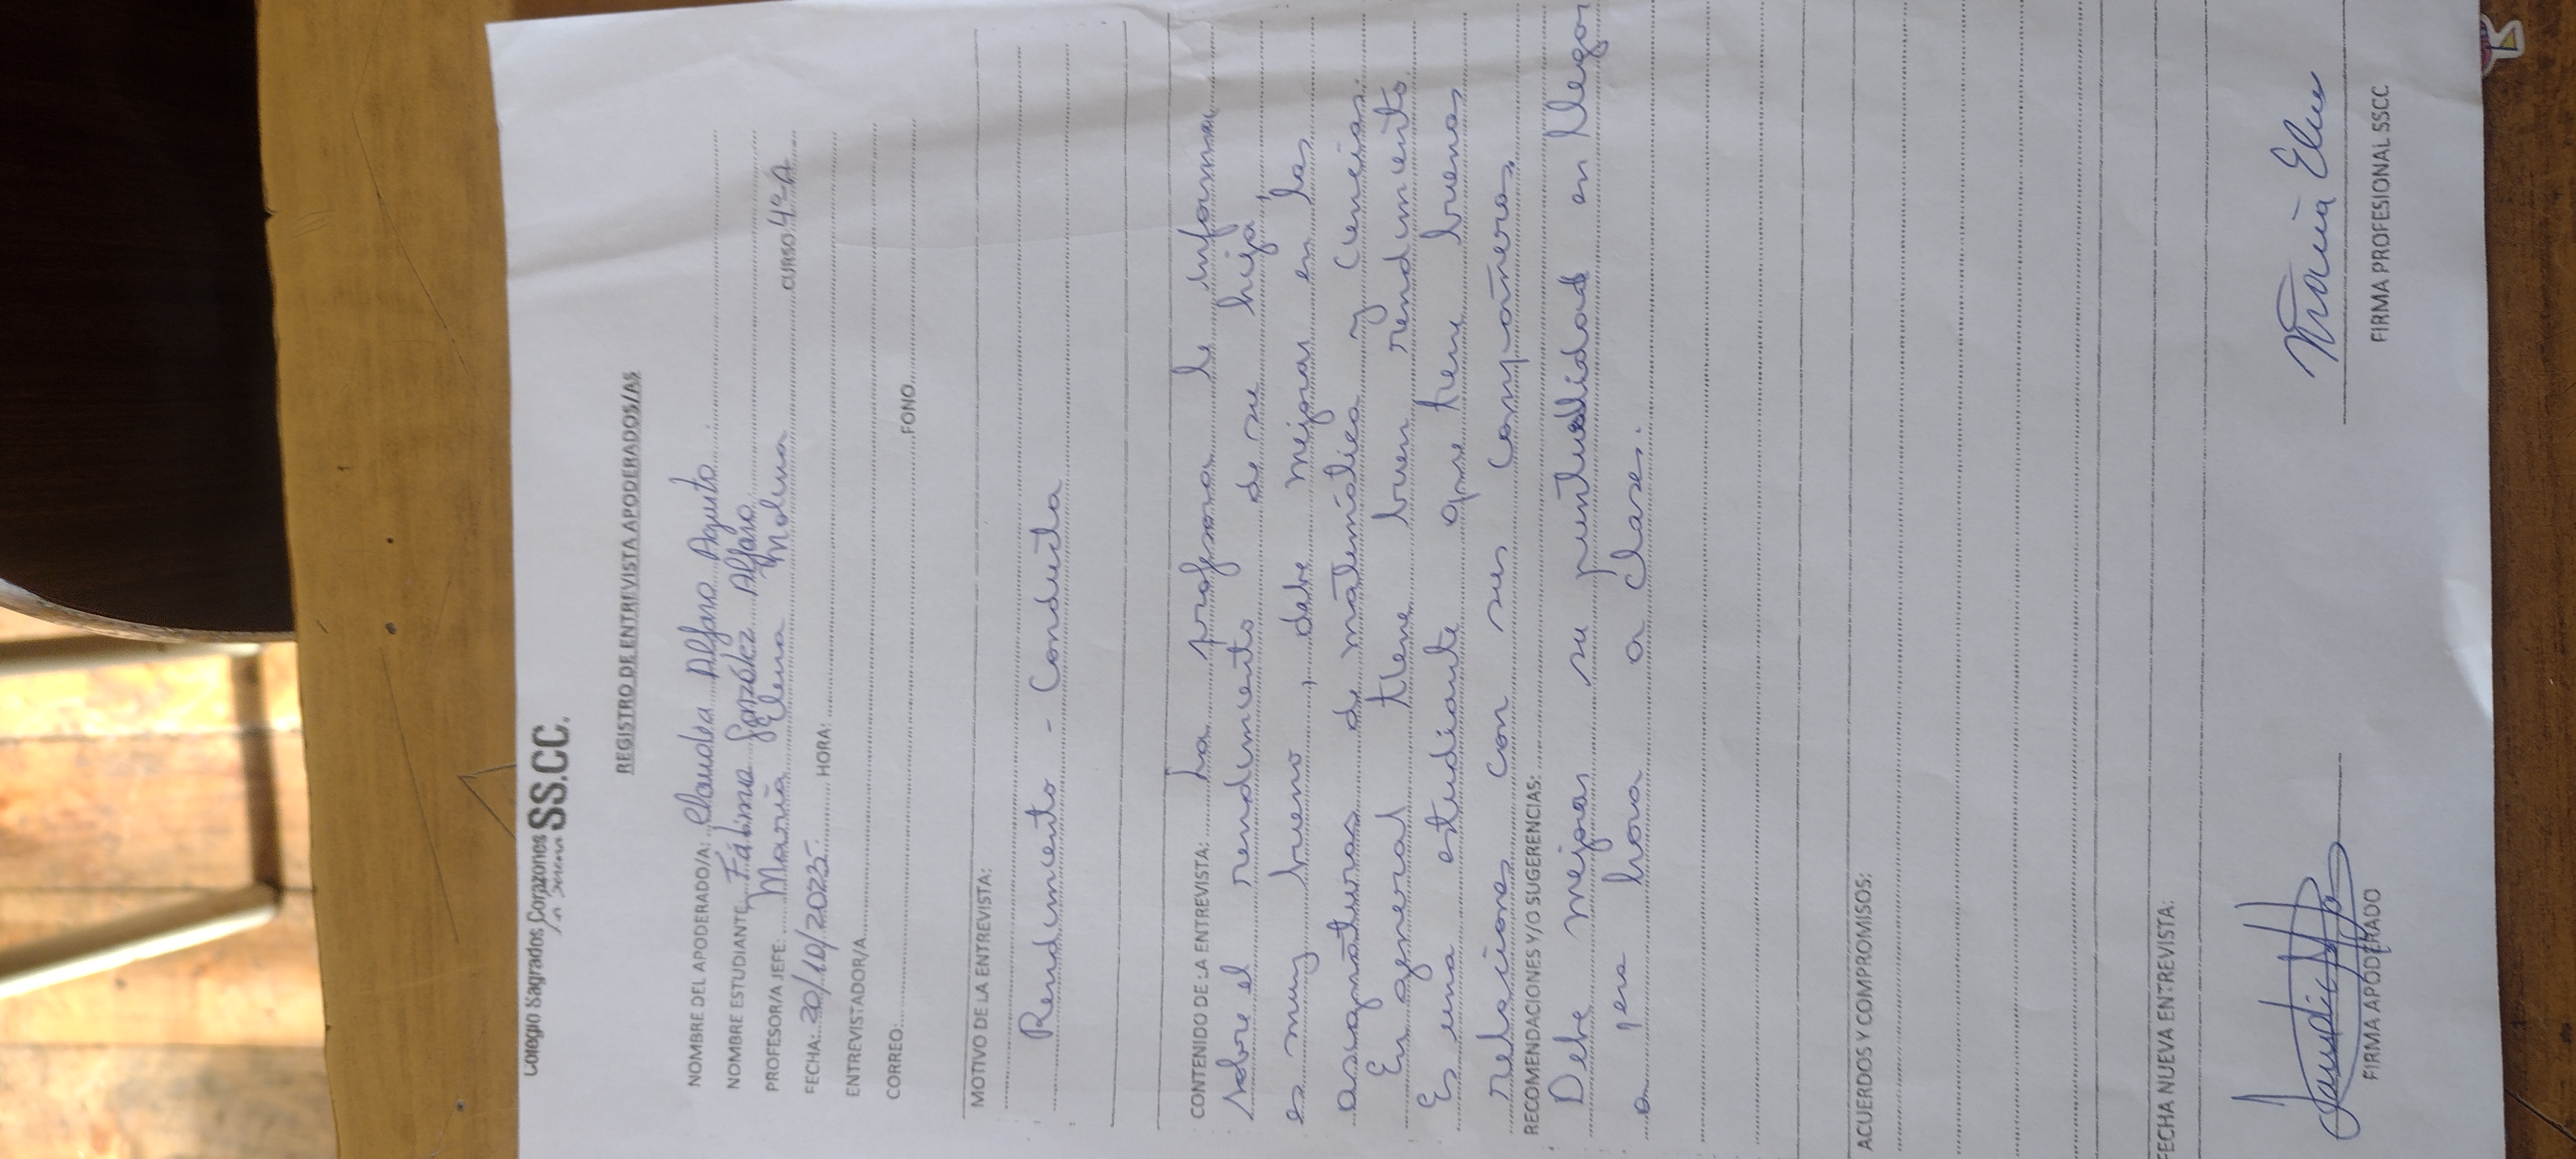 Colegio Sagrados Corazones SS.CC.
La Serena
REGISTRO DE ENTREVISTA APODERADOS/AS
NOMBRE DEL APODERADO/A: Claudia Alfaro Agurto
NOMBRE ESTUDIANTE Fátima González Alfaro
PROFESOR/A JEFE: María Elena Molina CURSO 4º A
FECHA: 20/10/2025 HORA:
ENTREVISTADOR/A
CORREO: FONO
MOTIVO DE LA ENTREVISTA:
Rendimiento - Conducta
CONTENIDO DE LA ENTREVISTA: La profesora le informa
sobre el rendimiento de su hija,
es muy bueno, debe mejorar en las
asignaturas de matemática y Ciencias.
En general tiene buen rendimiento
Es una estudiante que tiene buenas
relaciones con sus compañeros.
RECOMENDACIONES Y/O SUGERENCIAS:
Debe mejorar su puntualidad en llegar
a hora a clases.
ACUERDOS Y COMPROMISOS:
FECHA NUEVA ENTREVISTA:
María Elena
FIRMA APODERADO FIRMA PROFESIONAL SSCC